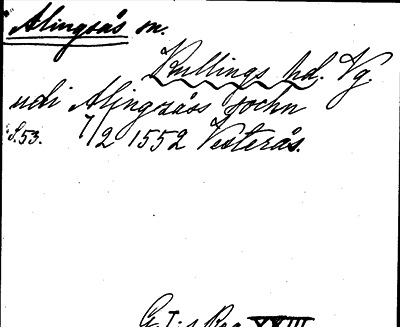 Alingsås sn.
Kullings hd. Vg.
udi Alingsåss sochn
S. 53. 7/2 1552 Vesterås.
G. I:s Reg. XXIII